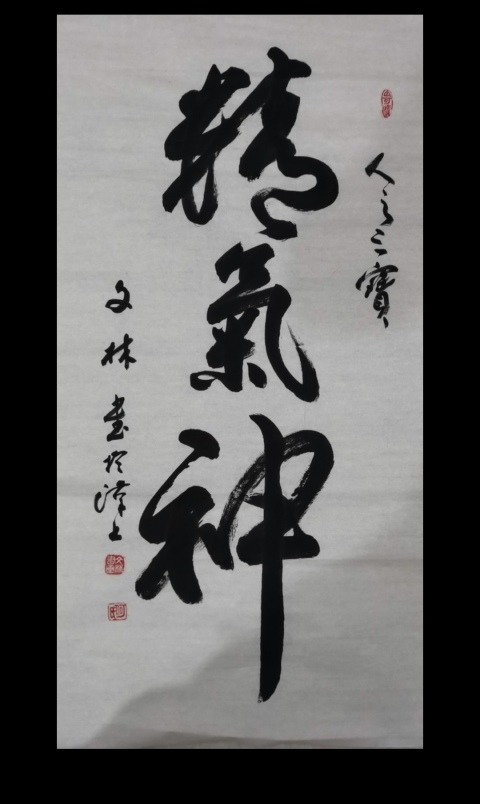 人之三寶
精氣神
文林書於漢上